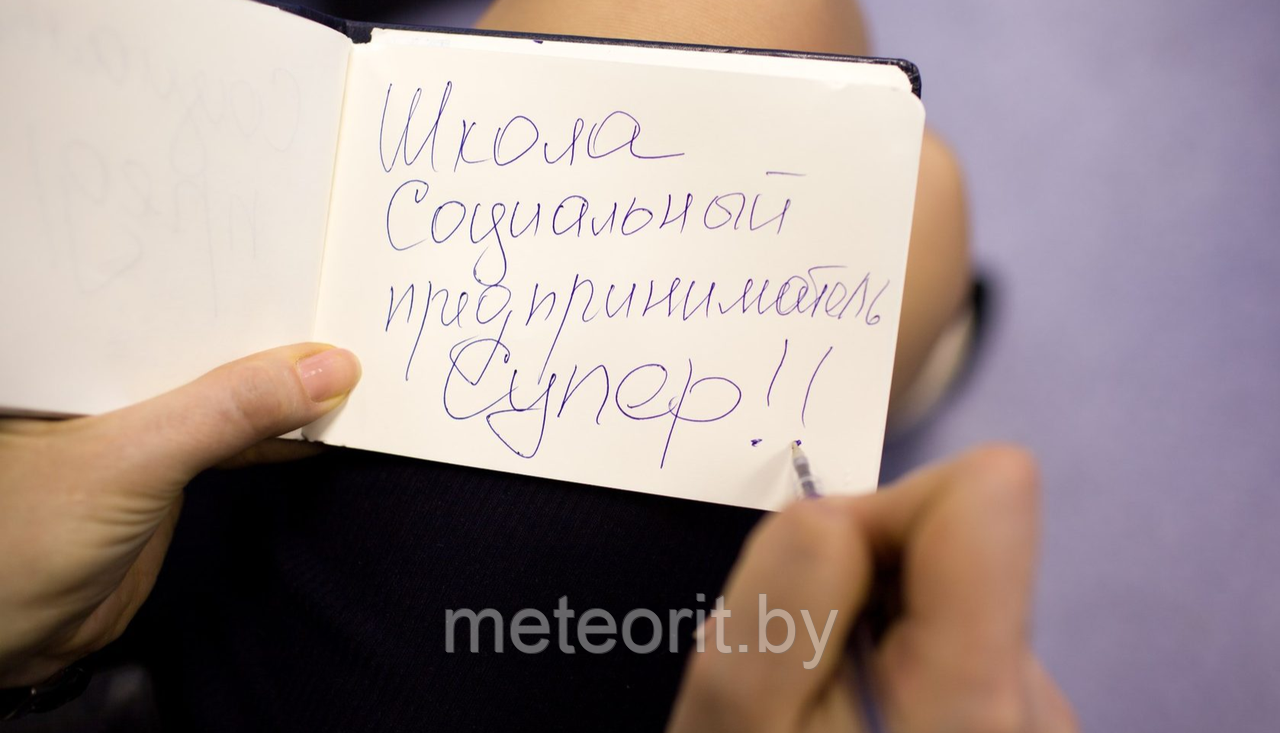 Школа
Социальный
предприниматель
Супер!!
meteorit.by